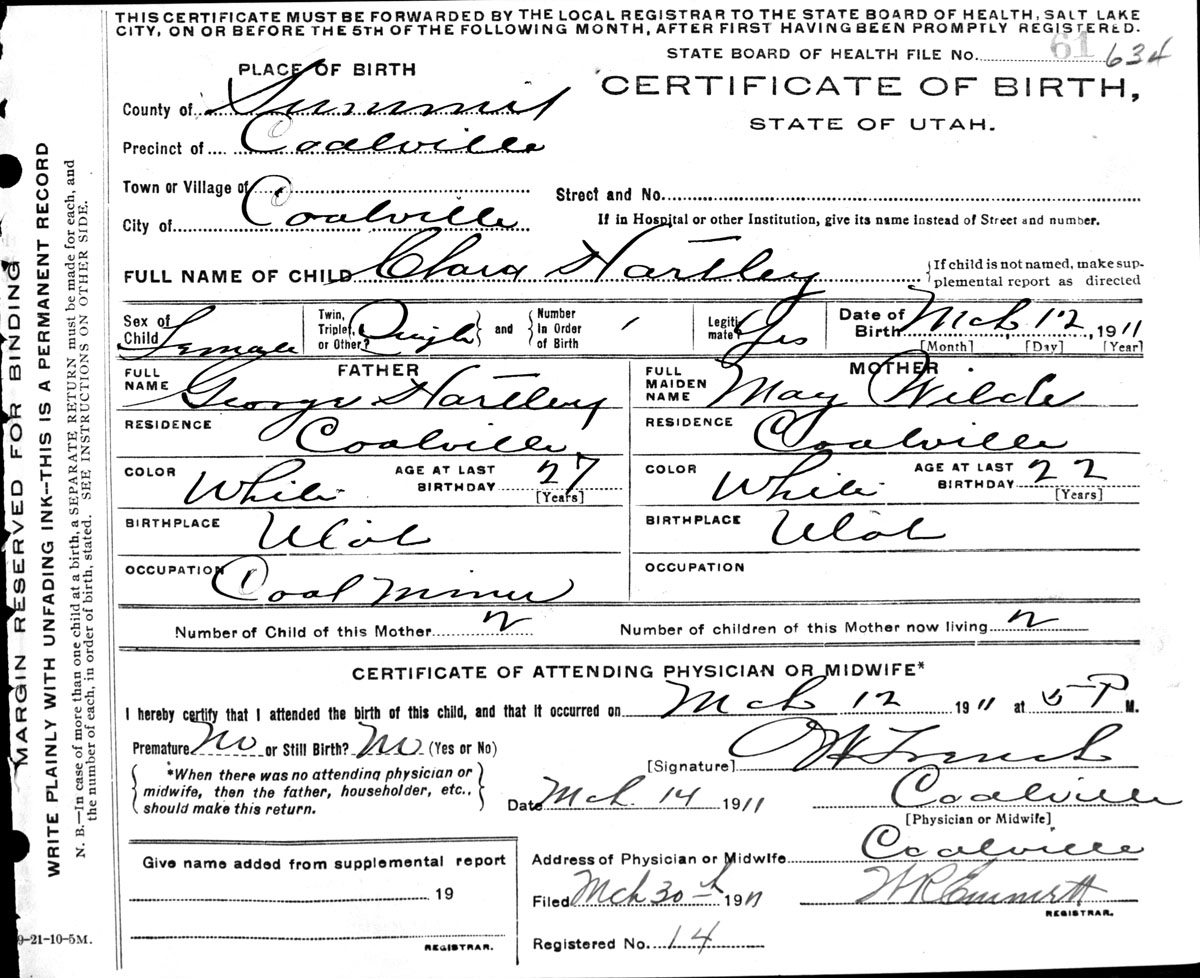 THIS CERTIFICATE MUST BE FORWARDED BY THE LOCAL REGISTRAR TO THE STATE BOARD OF HEALTH, SALT LAKE
CITY, ON OR BEFORE THE 5TH OF THE FOLLOWING MONTH, AFTER FIRST HAVING BEEN PROMPTLY REGISTERED.
STATE BOARD OF HEALTH FILE No. 61 634
PLACE OF BIRTH
CERTIFICATE OF BIRTH,
STATE OF UTAH.
County of Summit
Precinct of Coalville
Town or Village of
Street and No.
City of Coalville
If in Hospital or other Institution, give its name instead of Street and number.
FULL NAME OF CHILD Clara Hartley
If child is not named, make sup-
plemental report as directed
Sex of Child Female
Twin, Triplet, or Other? Single and Number In Order of Birth 1
Legiti mate? Yes
Date of Birth Mch 12, 1911
[Month] [Day] [Year]
FATHER
FULL NAME George Hartley
RESIDENCE Coalville
COLOR White AGE AT LAST BIRTHDAY 27 [Years]
BIRTHPLACE Utah
OCCUPATION Coal Miner
MOTHER
FULL MAIDEN NAME May Wilde
RESIDENCE Coalville
COLOR White AGE AT LAST BIRTHDAY 22 [Years]
BIRTHPLACE Utah
OCCUPATION
Number of Child of this Mother 2 Number of children of this Mother now living 2
CERTIFICATE OF ATTENDING PHYSICIAN OR MIDWIFE*
I hereby certify that I attended the birth of this child, and that it occurred on Mch 12 1911 at 5 P M.
Premature No or Still Birth? No (Yes or No)
*When there was no attending physician or
midwife, then the father, householder, etc.,
should make this return.
[Signature] French
Date Mch. 14 1911 Coalville
[Physician or Midwife]
Give name added from supplemental report
19
REGISTRAR.
Address of Physician or Midwife Coalville
Filed Mch 30th 1911 W R Emmett
REGISTRAR.
Registered No. 14
9-21-10-5M.
MARGIN RESERVED FOR BINDING
WRITE PLAINLY WITH UNFADING INK--THIS IS A PERMANENT RECORD
N. B.—In case of more than one child at a birth, a SEPARATE RETURN must be made for each, and
the number of each, in order of birth, stated. SEE INSTRUCTIONS ON OTHER SIDE.